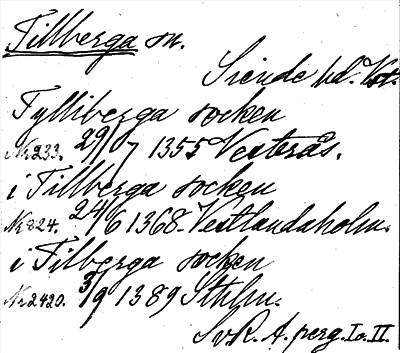 Tillberga sn.
Siende hd. Vstr.
Fylliberga socken
Nr 233. 29/7 1355 Vesterås.
i Tillberga socken
Nr 824. 24/6 1368. Vestlandaholm.
i Tilberga socken
Nr 2420. 3/9 1389 Sthlm.
SvR. A. perg. I o. II.